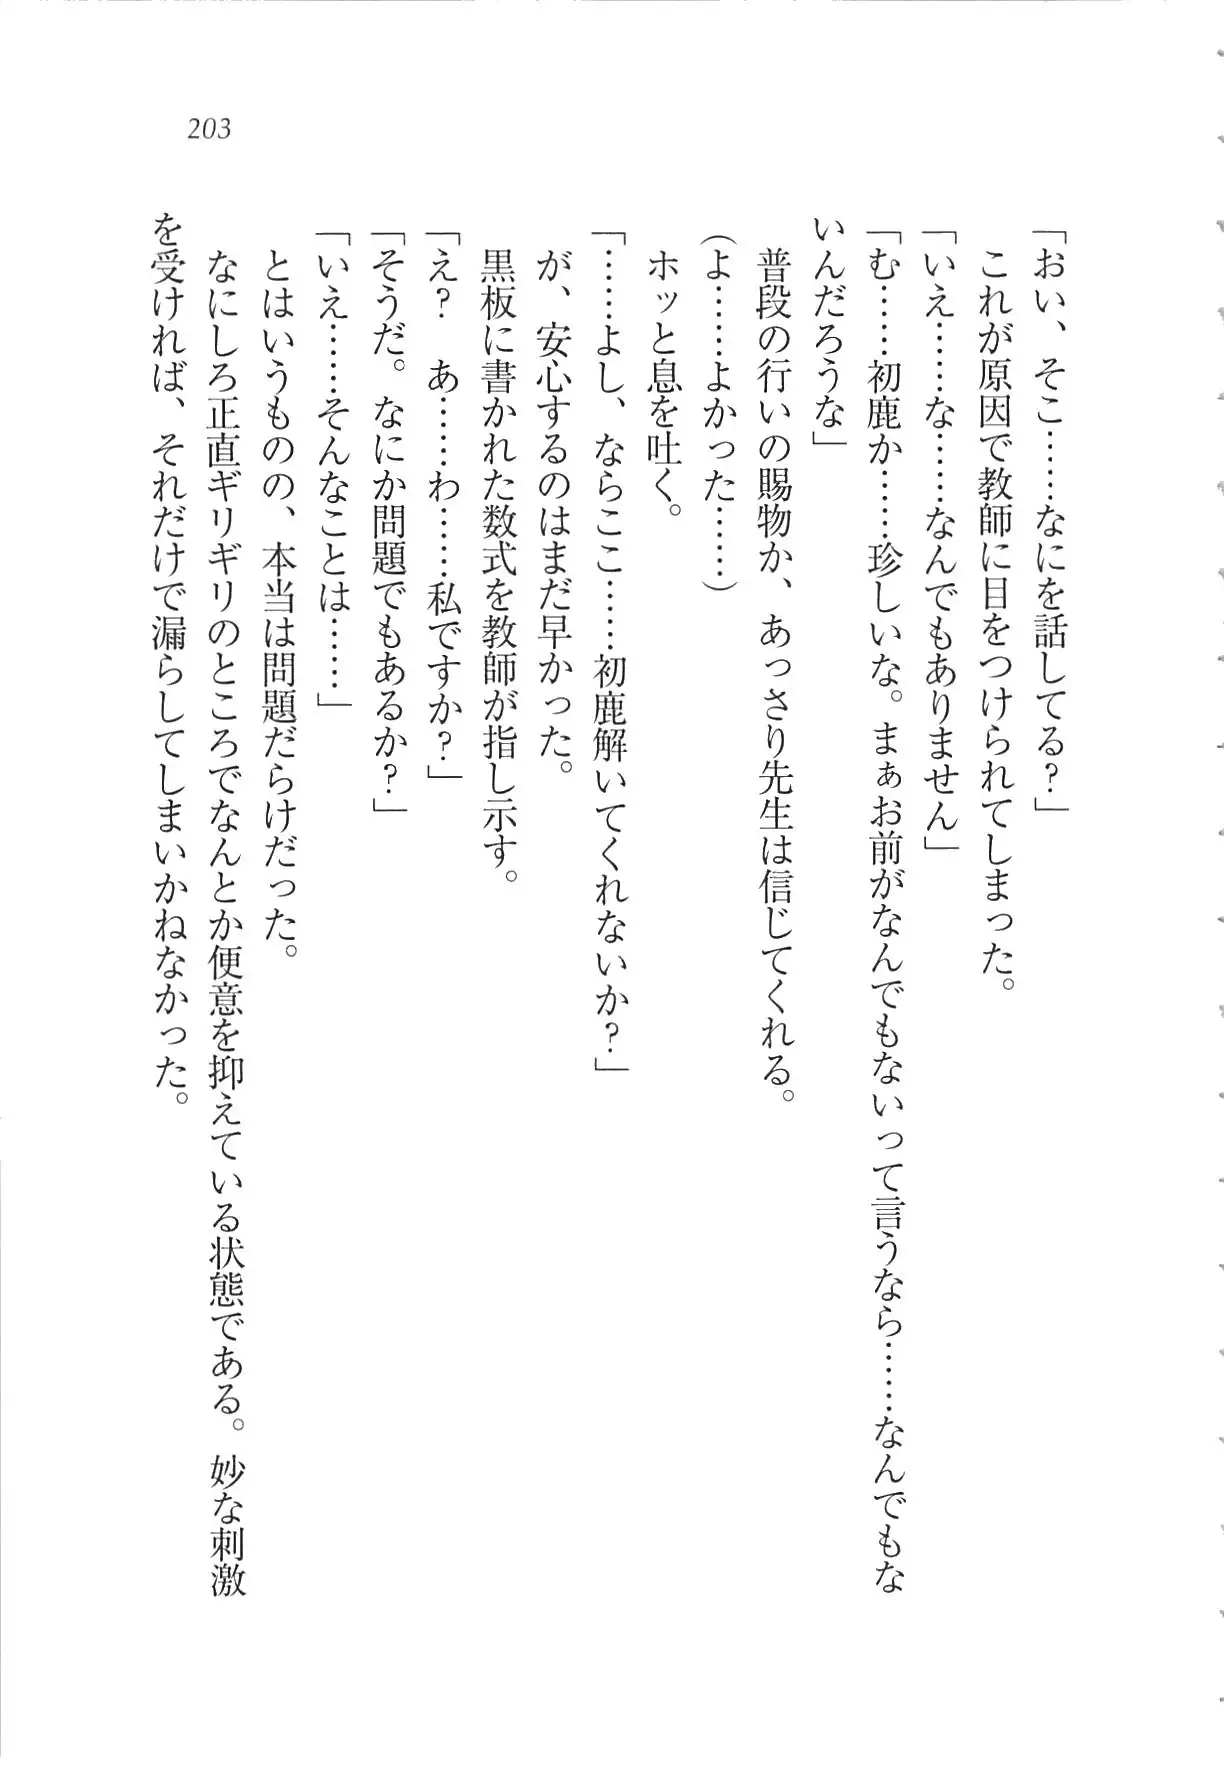 203
「おい、そこ……なにを話してる?」
これが原因で教師に目をつけられてしまった。
「いえ……な……なんでもありません」
「む……初鹿か……珍しいな。まぁお前がなんでもないって言うなら……なんでもな
いんだろうな」
普段の行いの賜物か、あっさり先生は信じてくれる。
(よ……よかった……)
ホッと息を吐く。
「……よし、ならここ……初鹿解いてくれないか?」
が、安心するのはまだ早かった。
黒板に書かれた数式を教師が指し示す。
「え? あ……わ……私ですか?」
「そうだ。なにか問題でもあるか?」
「いえ……そんなことは……」
とはいうものの、本当は問題だらけだった。
なにしろ正直ギリギリのところでなんとか便意を抑えている状態である。妙な刺激
を受ければ、それだけで漏らしてしまいかねなかった。